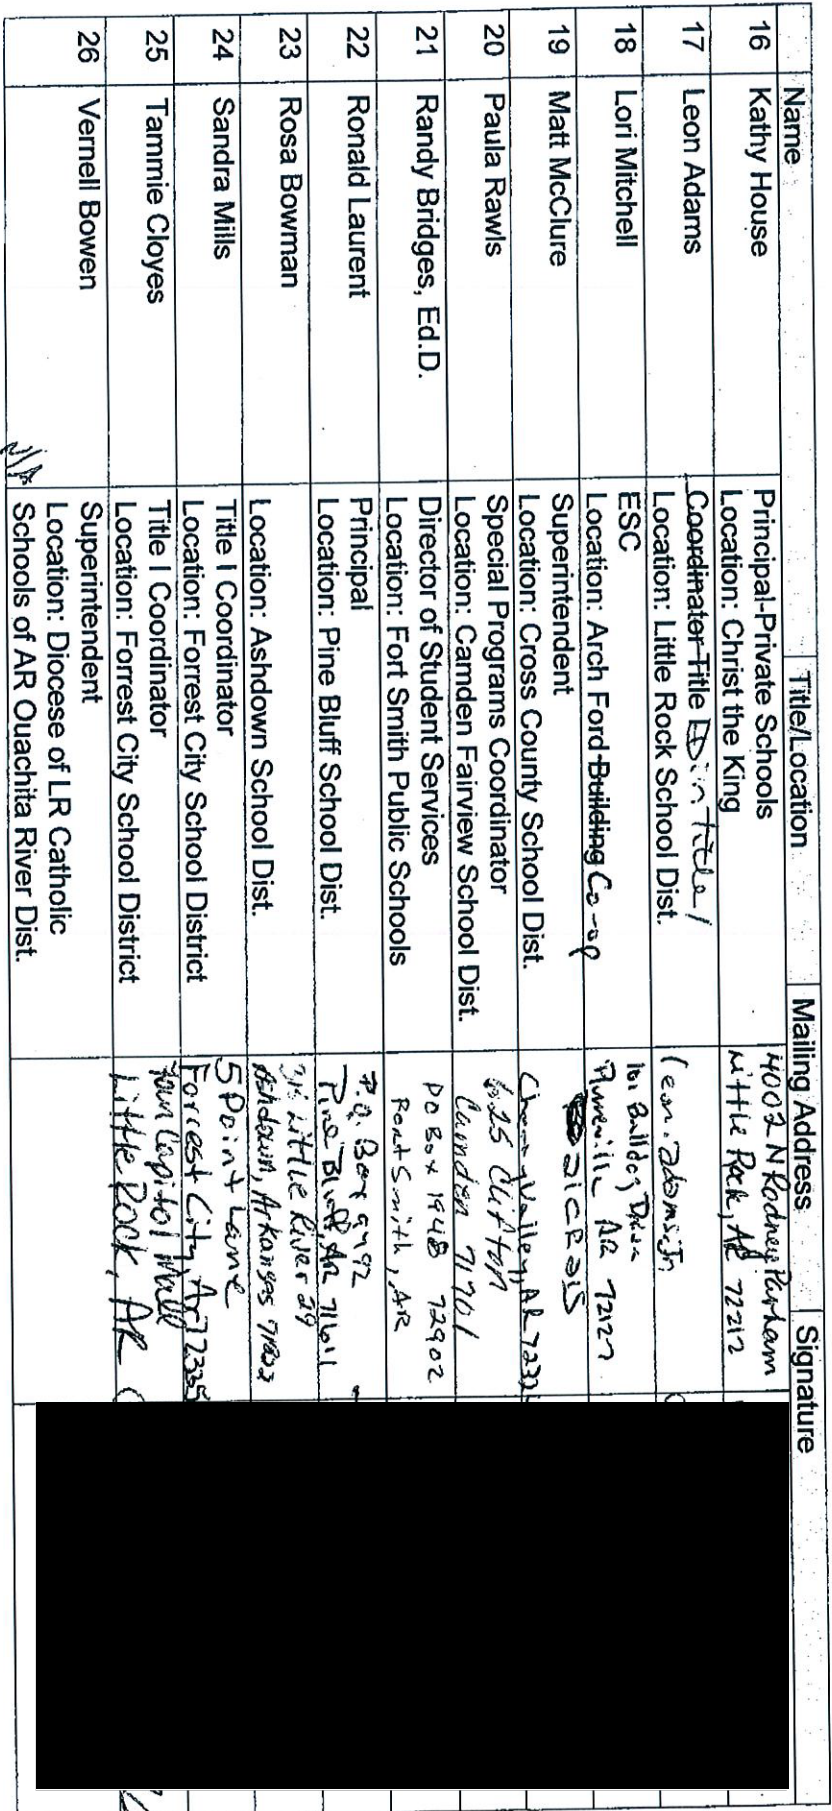 Name Title/Location Mailing Address Signature
16 Kathy House Principal-Private Schools
Location: Christ the King 4002 N Rodney Parham
Little Rock, AR 72212
17 Leon Adams Coordinator-Title
Location: Little Rock School Dist.
18 Lori Mitchell ESC
Location: Arch Ford Building Co-op 101 Bulldog Drive
Plumerville AR 72127
19 Matt McClure Superintendent
Location: Cross County School Dist. Cherry Valley, AR
20 Paula Rawls Special Programs Coordinator
Location: Camden Fairview School Dist. 625 Clifton
Camden 71701
21 Randy Bridges, Ed.D. Director of Student Services
Location: Fort Smith Public Schools PO Box 1948 72902
Fort Smith, AR
22 Ronald Laurent Principal
Location: Pine Bluff School Dist. P.O. Box
Pine Bluff, AR 71611
23 Rosa Bowman
Location: Ashdown School Dist. Little River 29
Ashdown, Arkansas 71822
24 Sandra Mills Title I Coordinator
Location: Forrest City School District 5 Point Lane
Forrest City, Ar 72335
25 Tammie Cloyes Title I Coordinator
Location: Forrest City School District Four Capitol Mall
Little Rock, AR
26 Vernell Bowen Superintendent
Location: Diocese of LR Catholic
N/A Schools of AR Ouachita River Dist.